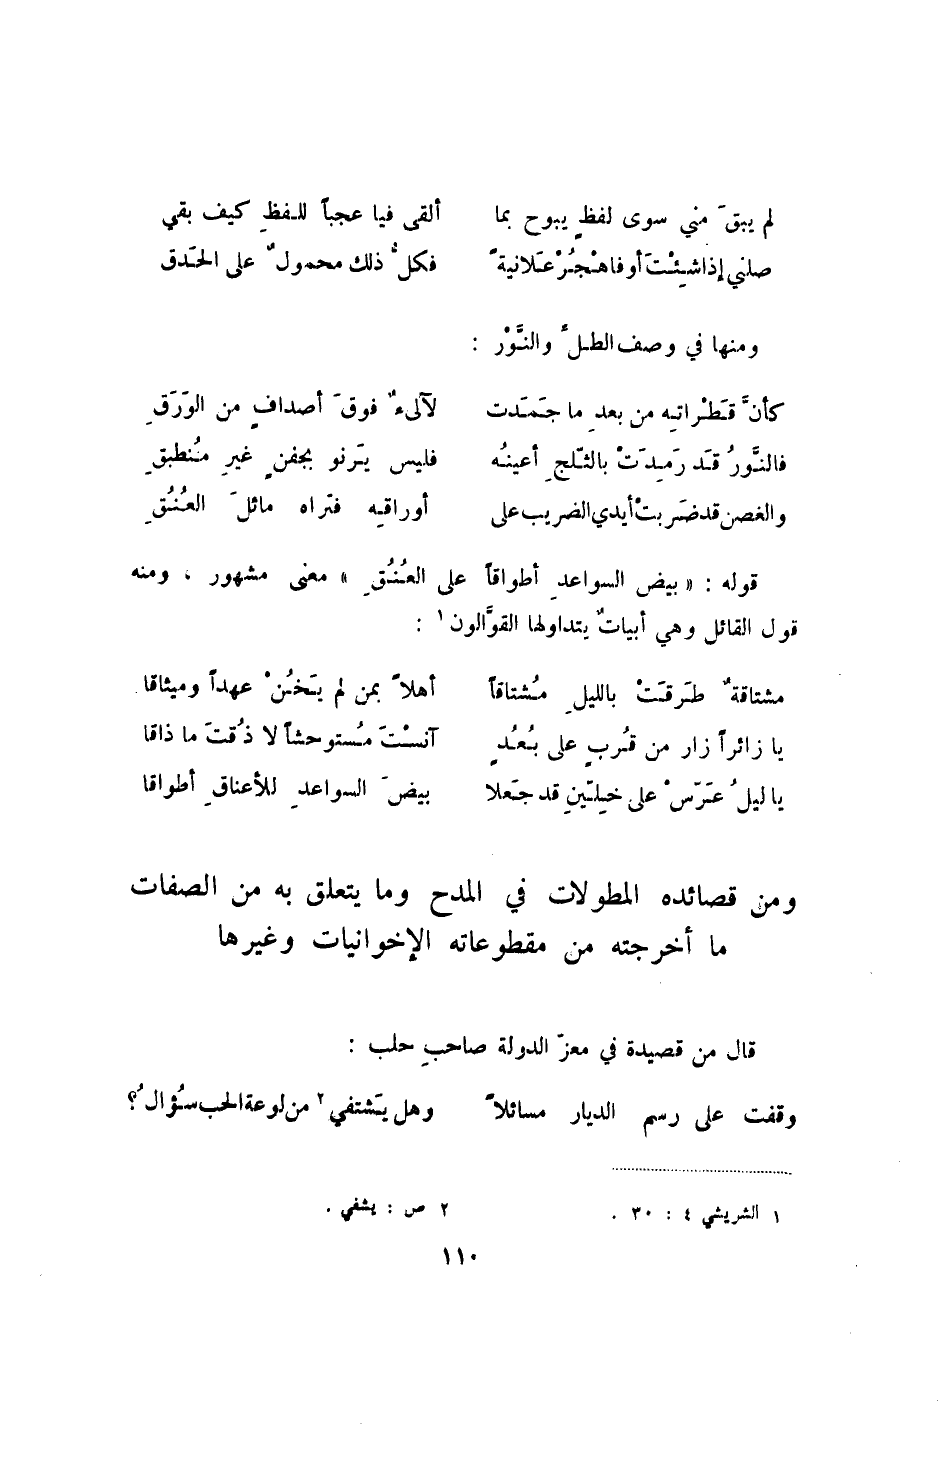 لم يبقَ مني سوى لفظٍ يبوح بما ألقى فيا عجباً للفظِ كيف بقي
صلني إذا شِئْتَ أو فاهْجُرْ عَلانيةً فكلُّ ذلك محمولٌ على الحَدق
ومنها في وصف الطلّ والنَّوْر :
كأنَّ قَطْراتِه من بعدِ ما جَمَدت لآلىءٌ فوقَ أصدافٍ من الوَرَقِ
فالنَّورُ قَد رَمِدَتْ بالثلجِ أعينُه فليس يَرنو بجفنٍ غيرِ مُنطبقِ
والغصن قد ضَربتْ أيدي الضريب على أوراقه فتراه مائلَ العُنُقِ
قوله : « بيض السواعدِ أطواقاً على العُنُقِ » معنى مشهور ، ومنه
قول القائل وهي أبياتٌ يتداولها القوَّالون ١ :
مشتاقةٌ طَرقَتْ بالليلِ مُشتاقاً أهلاً بمن لم يَخُنْ عهداً وميثاقا
يا زائراً زار من قُربٍ على بُعُدٍ آنسْتَ مُستوحشاً لا ذُقتَ ما ذاقا
يا ليلُ عَرّسْ على خِلَّينِ قد جَعلا بيضَ السواعدِ للأعناقِ أطواقا
ومن قصائده المطولات في المدح وما يتعلق به من الصفات
ما أخرجته من مقطوعاته الإخوانيات وغيرها
قال من قصيدة في معزّ الدولة صاحبِ حلب :
وقفت على رسم الديار مسائلاً وهل يَشتفي ٢ من لوعة الحب سُؤالُ؟
١ الشريشي ٤ : ٣٠ . ٢ ص : يشفي .
١١٠